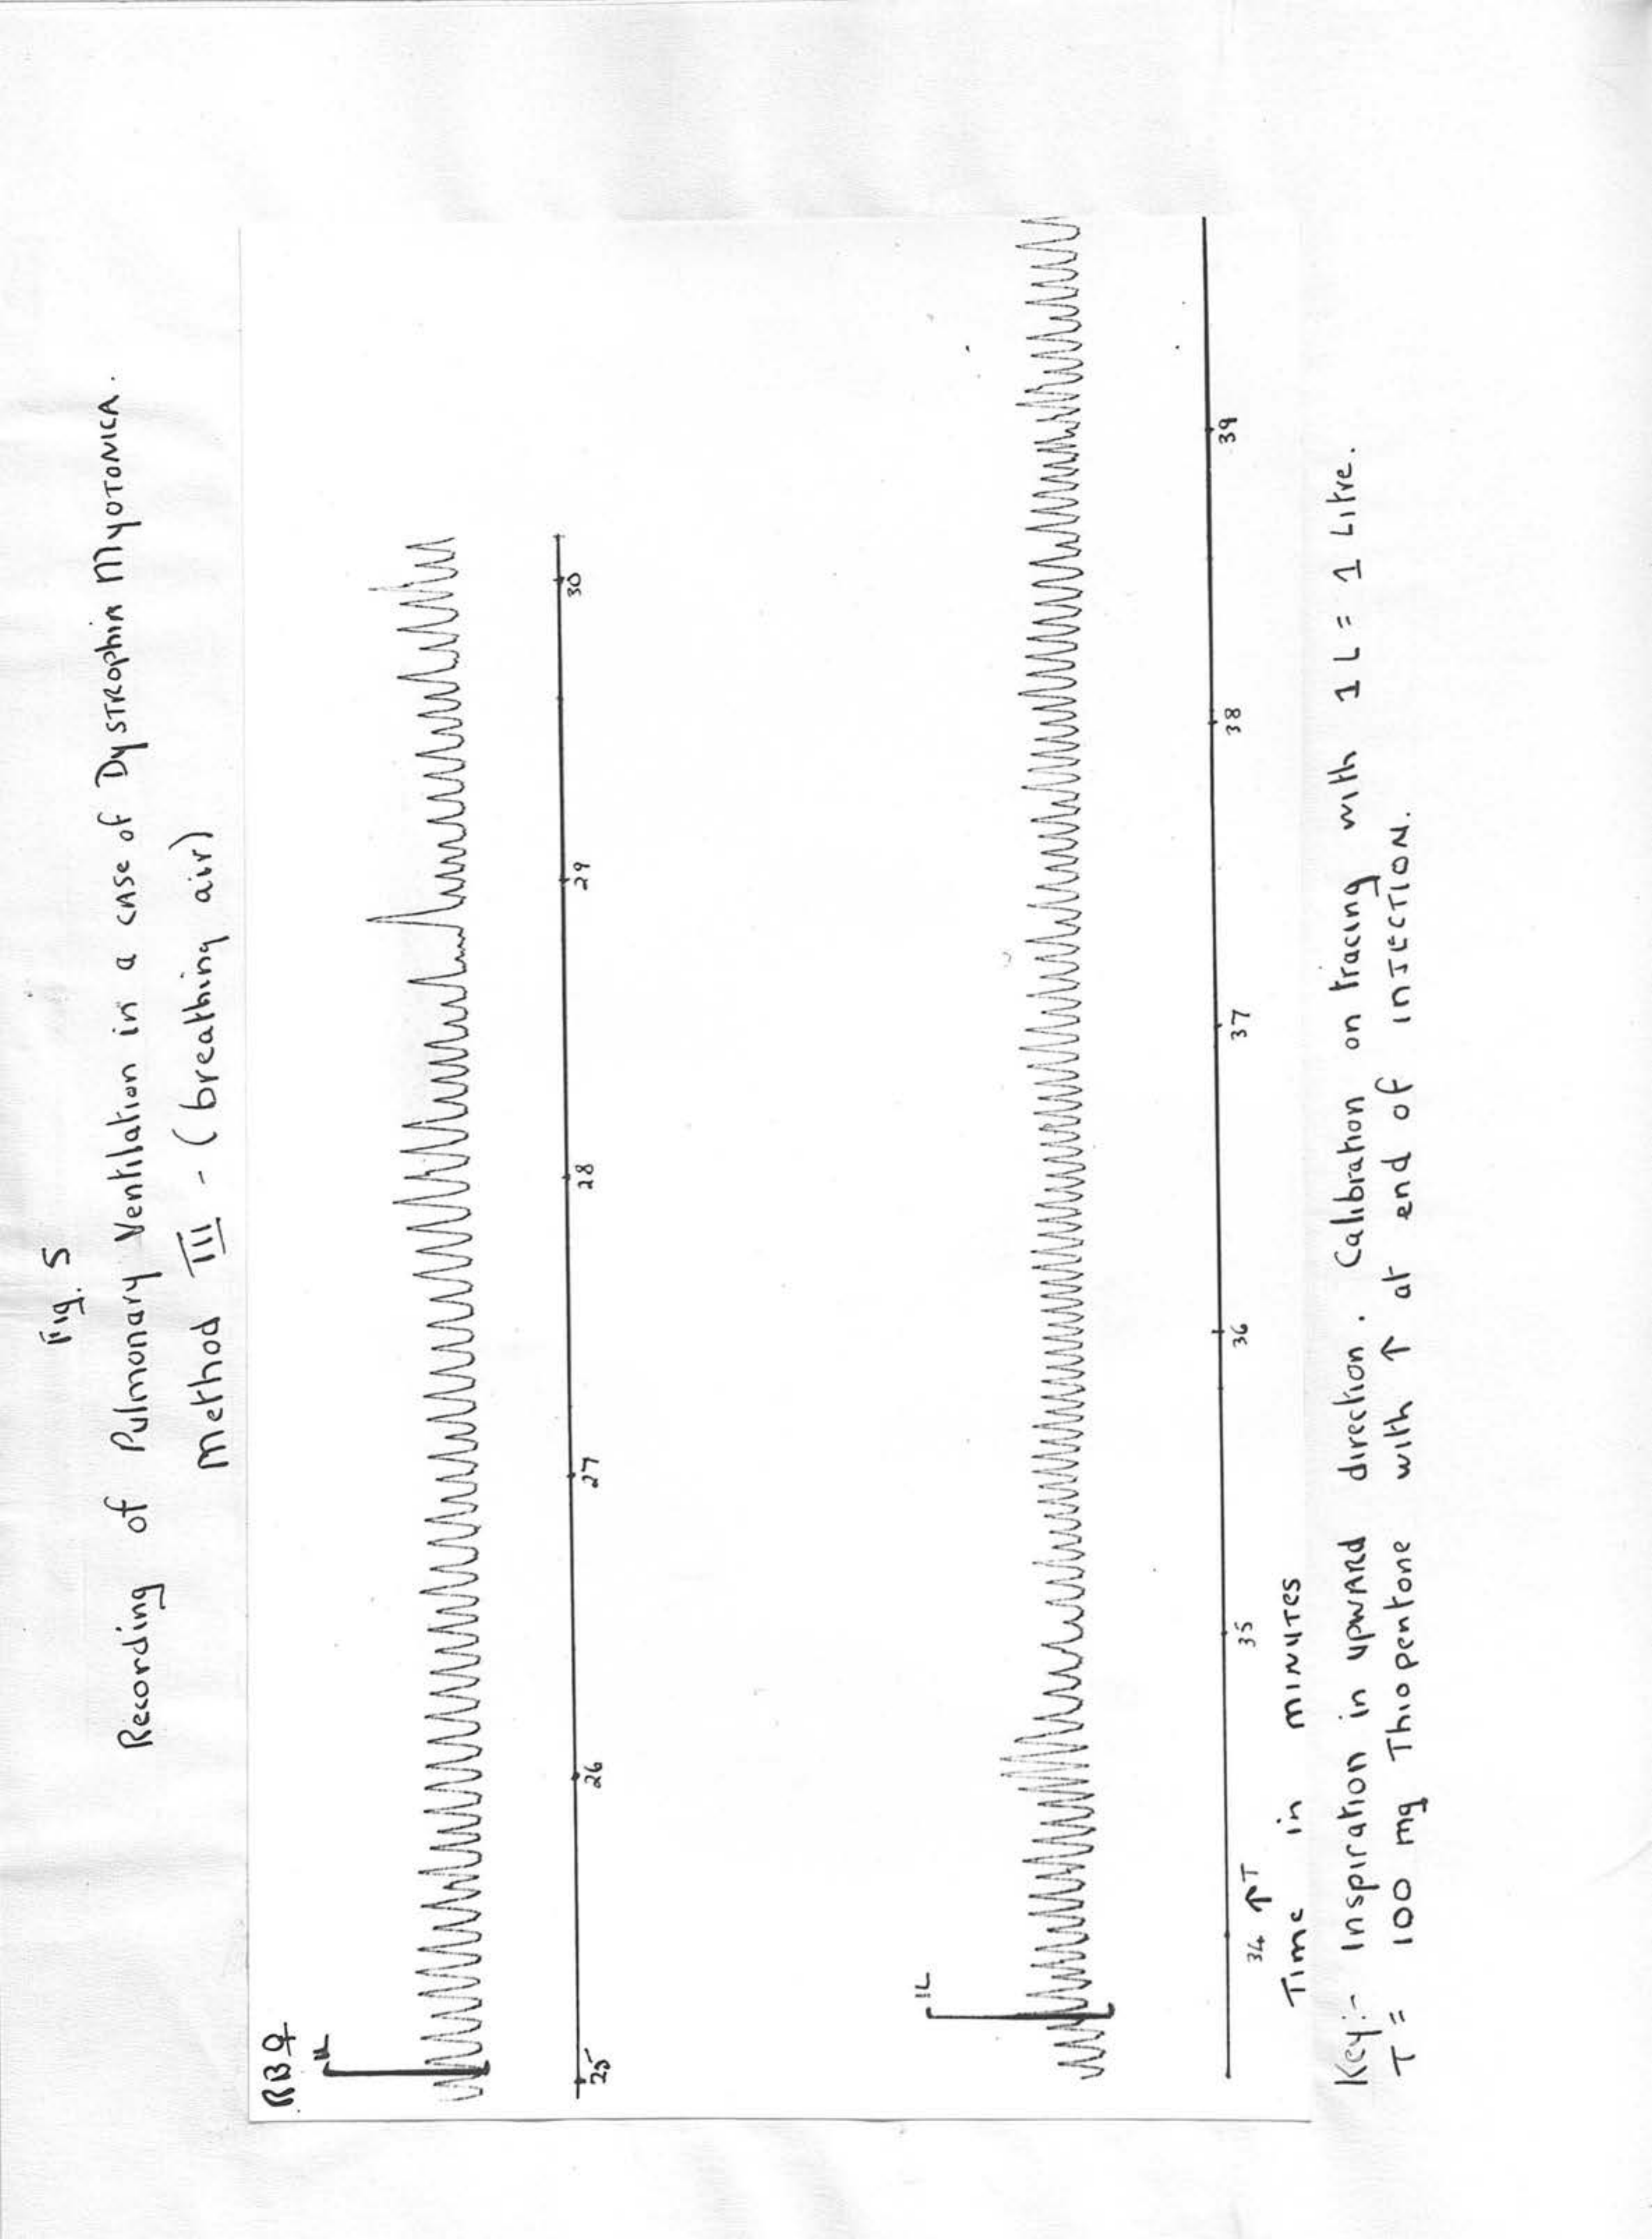 Fig. 5
Recording of Pulmonary Ventilation in a case of Dystrophia Myotonica.
Method III - (breathing air)
RB♀
1L
25 26 27 28 29 30
1L
34 ↑T 35 36 37 38 39
Time in minutes
Key:- Inspiration in upward direction. Calibration on tracing with 1L = 1 Litre.
T = 100 mg Thiopentone with ↑ at end of injection.